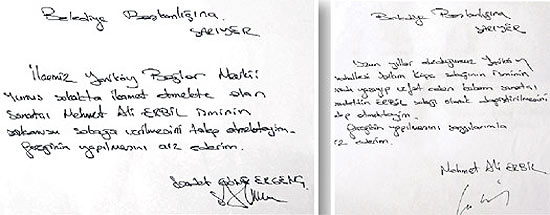 Belediye Başkanlığına
SARIYER
İlçemiz Yeniköy Bağlar Mevkii
Yunus sokakta ikamet etmekte olan
sanatçı Mehmet Ali ERBİL isminin
sokağa verilmesini talep etmekteyim.
Gereğinin yapılmasını arz ederim.
Belediye Başkanlığına
SARIYER
Uzun yıllar oturduğumuz Yeniköy
sokağının isminin
yaşayıp vefat eden babam sanatçı
Sadettin ERBİL sokağı olarak değiştirilmesini
talep etmekteyim.
Gereğinin yapılmasını saygılarımla
arz ederim.
Mehmet Ali ERBİL